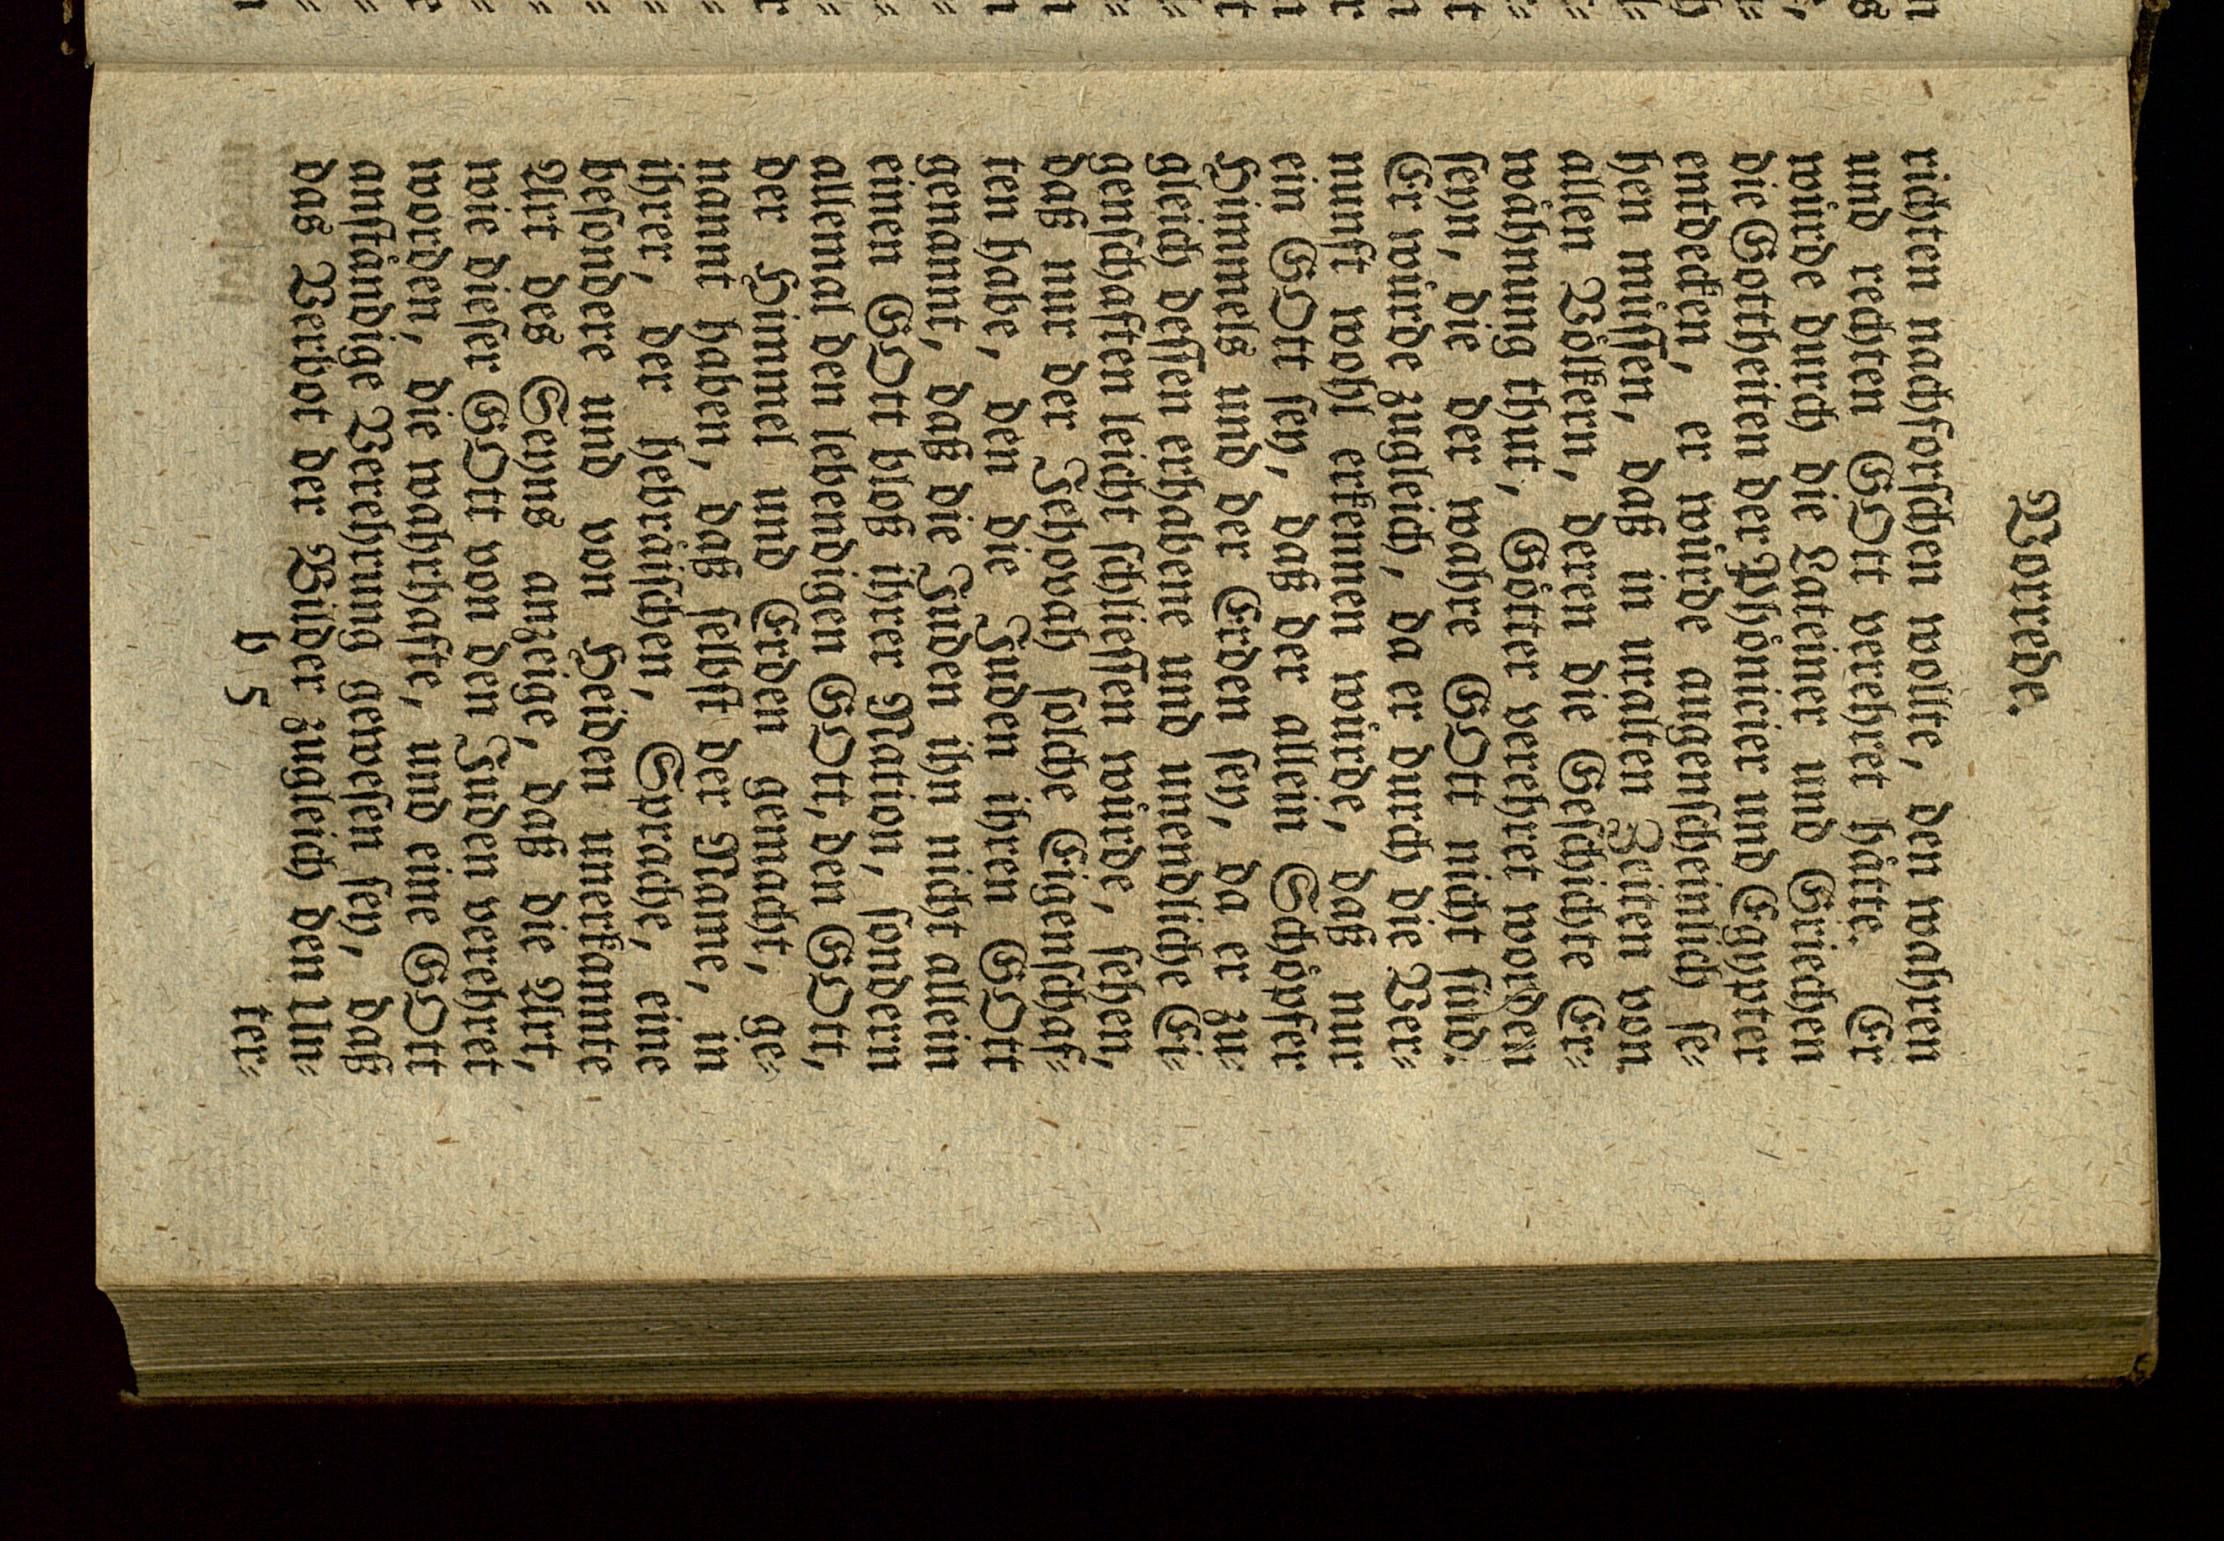 Vorrede.
richten nachforschen wollte, den wahren
und rechten GOtt verehret hätte. Er
würde durch die Lateiner und Griechen
die Gottheiten der Phönicier und Egypter
entdecken, er würde augenscheinlich se-
hen müssen, daß in uralten Zeiten von
allen Völkern, deren die Geschichte Er-
wähnung thut, Götter verehret worden
seyn, die der wahre GOtt nicht sind.
Er würde zugleich, da er durch die Ver-
nunft wohl erkennen würde, daß nur
ein GOtt sey, daß der allein Schöpfer
Himmels und der Erden sey, da er zu-
gleich dessen erhabene und unendliche Ei-
genschaften leicht schliessen würde, sehen,
daß nur der Jehovah solche Eigenschaf-
ten habe, den die Juden ihren GOtt
genannt, daß die Juden ihn nicht allein
einen GOtt bloß ihrer Nation, sondern
allemal den lebendigen GOtt, den GOtt,
der Himmel und Erden gemacht, ge-
nannt haben, daß selbst der Name, in
ihrer, der hebräischen, Sprache, eine
besondere und von Heiden unerkannte
Art des Seyns anzeige, daß die Art,
wie dieser GOtt von den Juden verehret
worden, die wahrhafte, und eine GOtt
anständige Verehrung gewesen sey, daß
das Verbot der Bilder zugleich den Un-
b 5
ter-